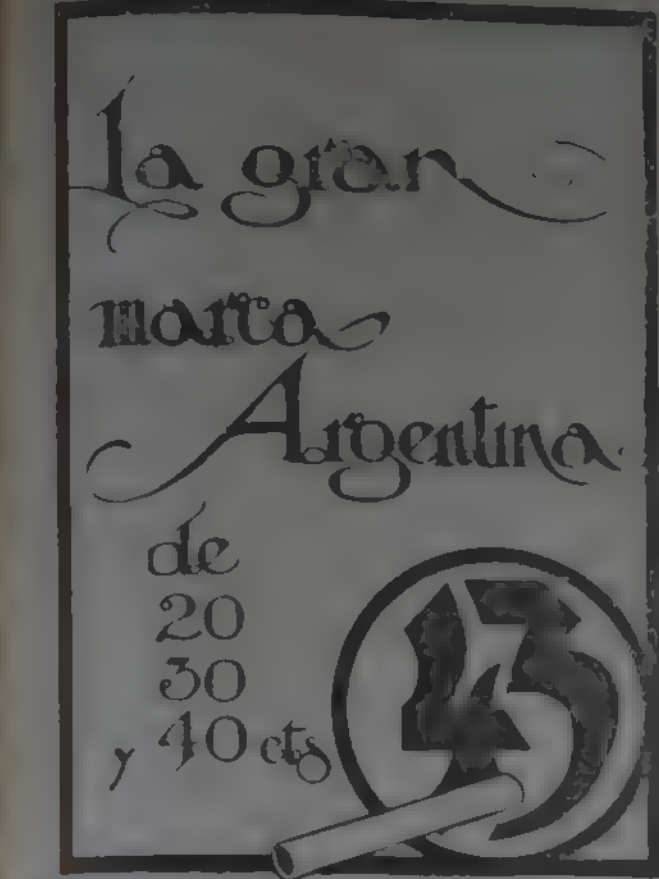 La gran
marca
Argentina
de
20
30
y 40 cts
43